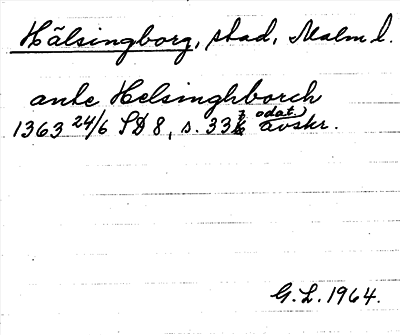 Hälsingborg, stad, Malm l.
ante Helsinghborch
1363 24/6 SD 8, s. 337 odat. avskr.
G. L. 1964.